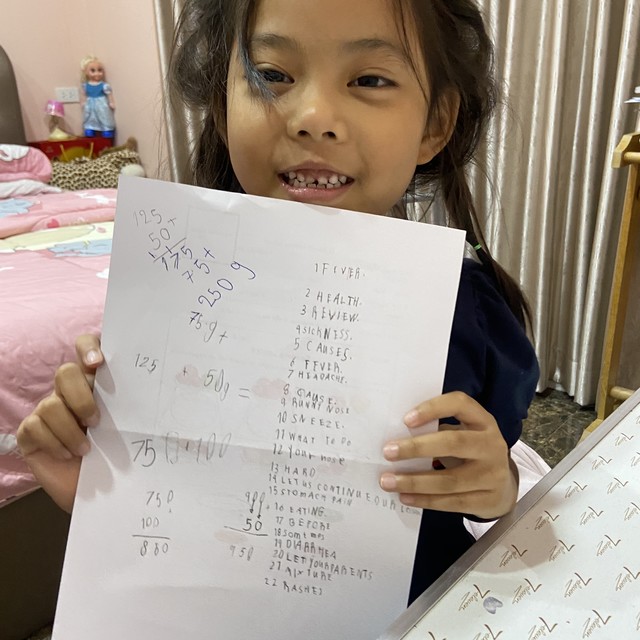 125 +
50
175 +
75
250 g
75 g +
125 + 50g =
750 + 100
750
100
860
900
50
950
1 FEVER.
2 HEALTH.
3 REVIEW.
4 SICKNESS.
5 CAUSES.
6 FEVER.
7 HEADACHE.
8 CAUSE.
9 RUNNY NOSE
10 SNEEZE.
11 What to Do
12 your nose
13 HARD
14 LET US CONTINUE OUR
15 STOMACH PAIN
16 EATING
17 BEFORE
18 Somtims
19 DIARRHEA
20 LET YOUR PARENTS
21
22 RASHES